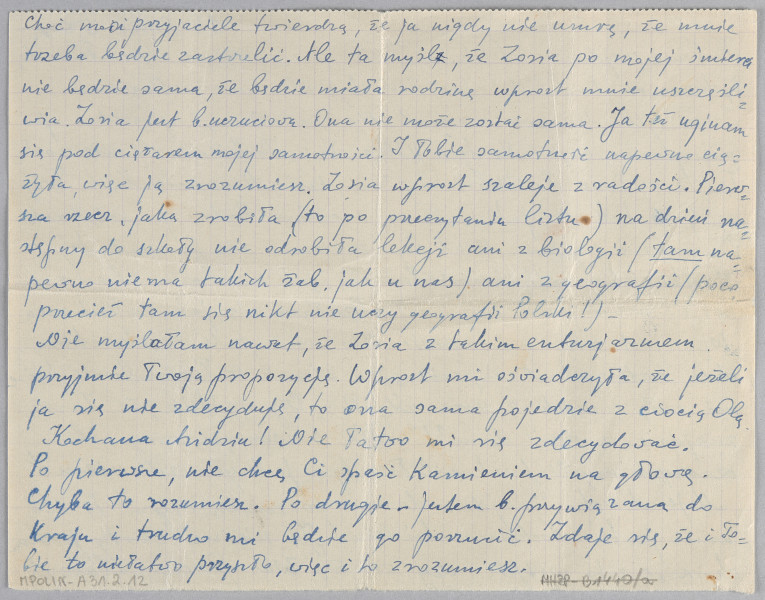 Choć moi przyjaciele twierdzą, że ja nigdy nie umrę, że mnie
trzeba będzie zastrzelić. Ale ta myśl, że Zosia po mojej śmierci
nie będzie sama, że będzie miała rodzinę wprost mnie uszczęśli=
wia. Zosia jest b. uczuciowa. Ona nie może zostać sama. Ja też uginam
się pod ciężarem mojej samotności. I Tobie samotność napewno cią=
żyła, więc ją zrozumiesz. Zosia wprost szaleje z radości. Pierw=
sza rzecz, jaką zrobiła (to po przeczytaniu listu) na dzień na=
stępny do szkoły nie odrobiła lekcji ani z biologii (tam na=
pewno niema takich żab, jak u nas) ani z geografii (poco
przecież tam się nikt nie uczy geografii Polski!) –
Nie myślałam nawet, że Zosia z takim enturjazmem
przyjmie Twoją propozycję. Wprost mi oświadczyła, że jeżeli
ja się nie zdecyduję, to ona sama pojedzie z ciocią Olą.
Kochana! Nie łatwo mi się zdecydować.
Po pierwsze, nie chcę Ci spaść kamieniem na głowę.
Chyba to rozumiesz. Po drugie – jestem b. przywiązana do
Kraju i trudno mi będzie go porzucić. Zdaje się, że i To=
bie to niełatwo przyszło, więc i to zrozumiesz.
MPOLIN-A31.2.12